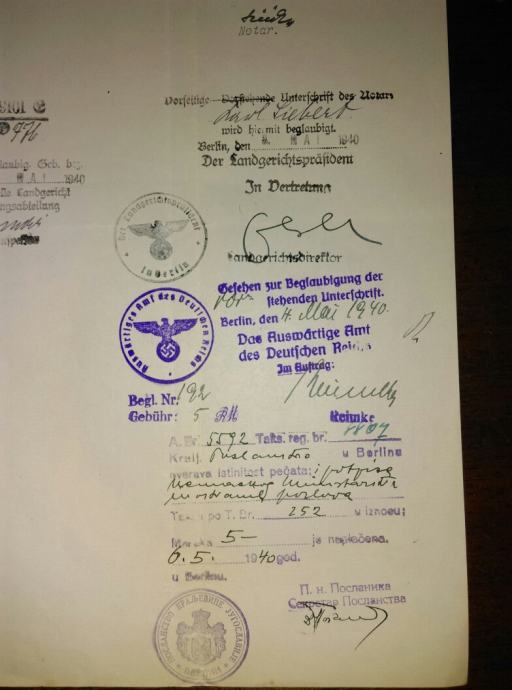 Notar.
Vorseitige Vorstehende Unterschrift des Notars
Karl Siebert
wird hiermit beglaubigt.
Berlin, den MAI 1940
Der Landgerichtspräsident
In Vertretung
Landgerichtsdirektor
MAI 1940
Der Landgerichtspräsident
in Berlin
Gesehen zur Beglaubigung der
vor stehenden Unterschrift.
Berlin, den 4. Mai 1940.
Das Auswärtige Amt
des Deutschen Reichs
Im Auftrag:
Auswärtiges Amt des Deutschen Reichs
Begl. Nr. 192
Gebühr: 5 RM
Reimke
A. Br. 5592 Taks. reg. br.
Kralj. Poslanstvo u Berlinu
overava istinitost pečata i potpisa
Nemačkog Ministarstva
inostranih poslova
Taksa po T. Br. 252 u iznosu;
Maraka 5- je naplaćena.
6.5. 1940 god.
u Berlinu.
П. н. Посланика
Секретар Посланства
ПОСЛАНСТВО КРАЉЕВИНЕ ЈУГОСЛАВИЈЕ